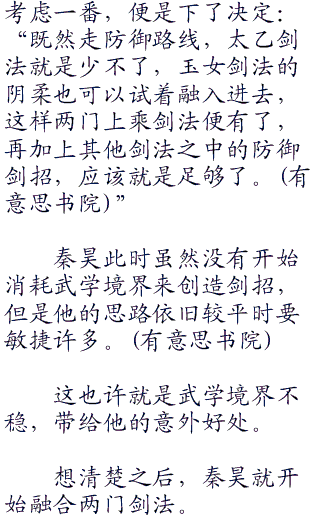 考虑一番，便是下了决定：
“既然走防御路线，太乙剑
法就是少不了，玉女剑法的
阴柔也可以试着融入进去，
这样两门上乘剑法便有了，
再加上其他剑法之中的防御
剑招，应该就是足够了。(有
意思书院)”
秦昊此时虽然没有开始
消耗武学境界来创造剑招，
但是他的思路依旧较平时要
敏捷许多。(有意思书院)
这也许就是武学境界不
稳，带给他的意外好处。
想清楚之后，秦昊就开
始融合两门剑法。